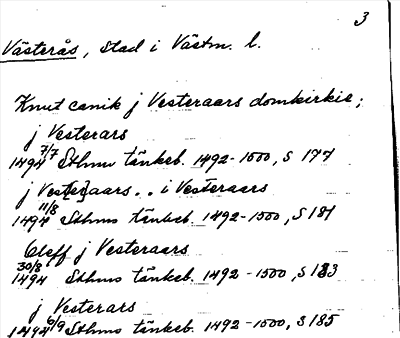 3
Västerås, stad i Västm. l.
Knut canik j Vesteraars domkirkie;
j Vesterars
7/7 1494 Sthms tänkeb. 1492-1500, S 177
j Vest[e]raars.. i Vesteraars
11/8 1494 Sthms tänkeb. 1492-1500, S 181
Oleff j Vesteraars
30/8 1494 Sthms tänkeb. 1492-1500, S 183
j Vesterars
6/9 1494 Sthms tänkeb. 1492-1500, S 185